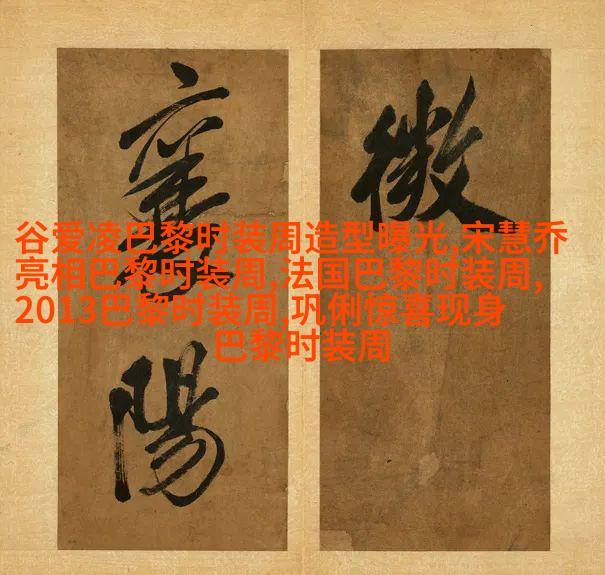 襄陽
谷爱凌巴黎时装周造型曝光,宋慧乔
亮相巴黎时装周,法国巴黎时装周,
2013巴黎时装周,巩俐惊喜现身
巴黎时装周